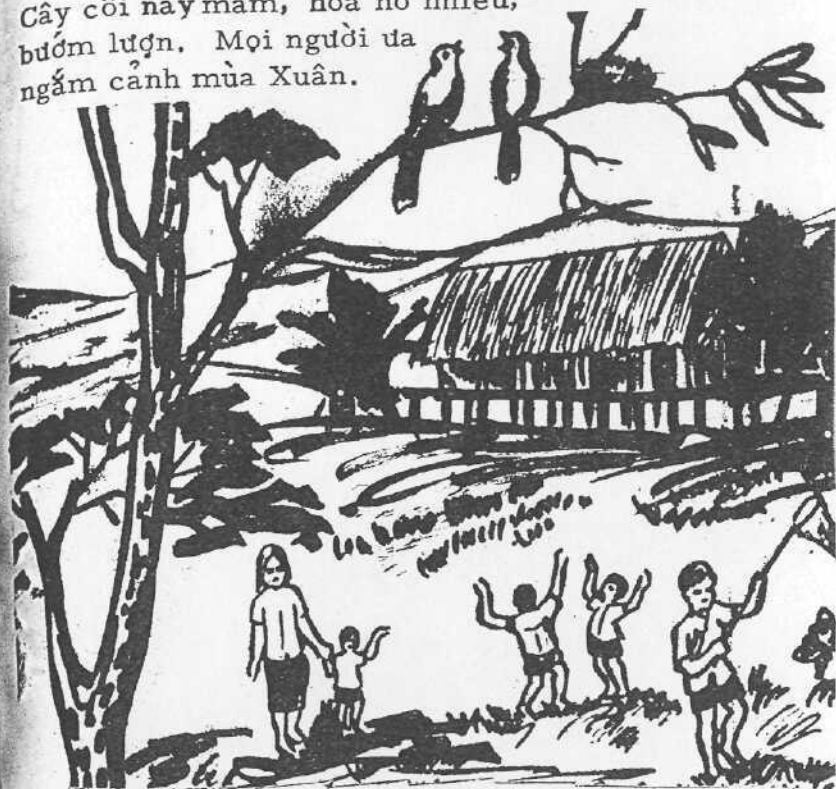 Cây cối nảy mầm, hoa nở nhiều,
bướm lượn. Mọi người ưa
ngắm cảnh mùa Xuân.